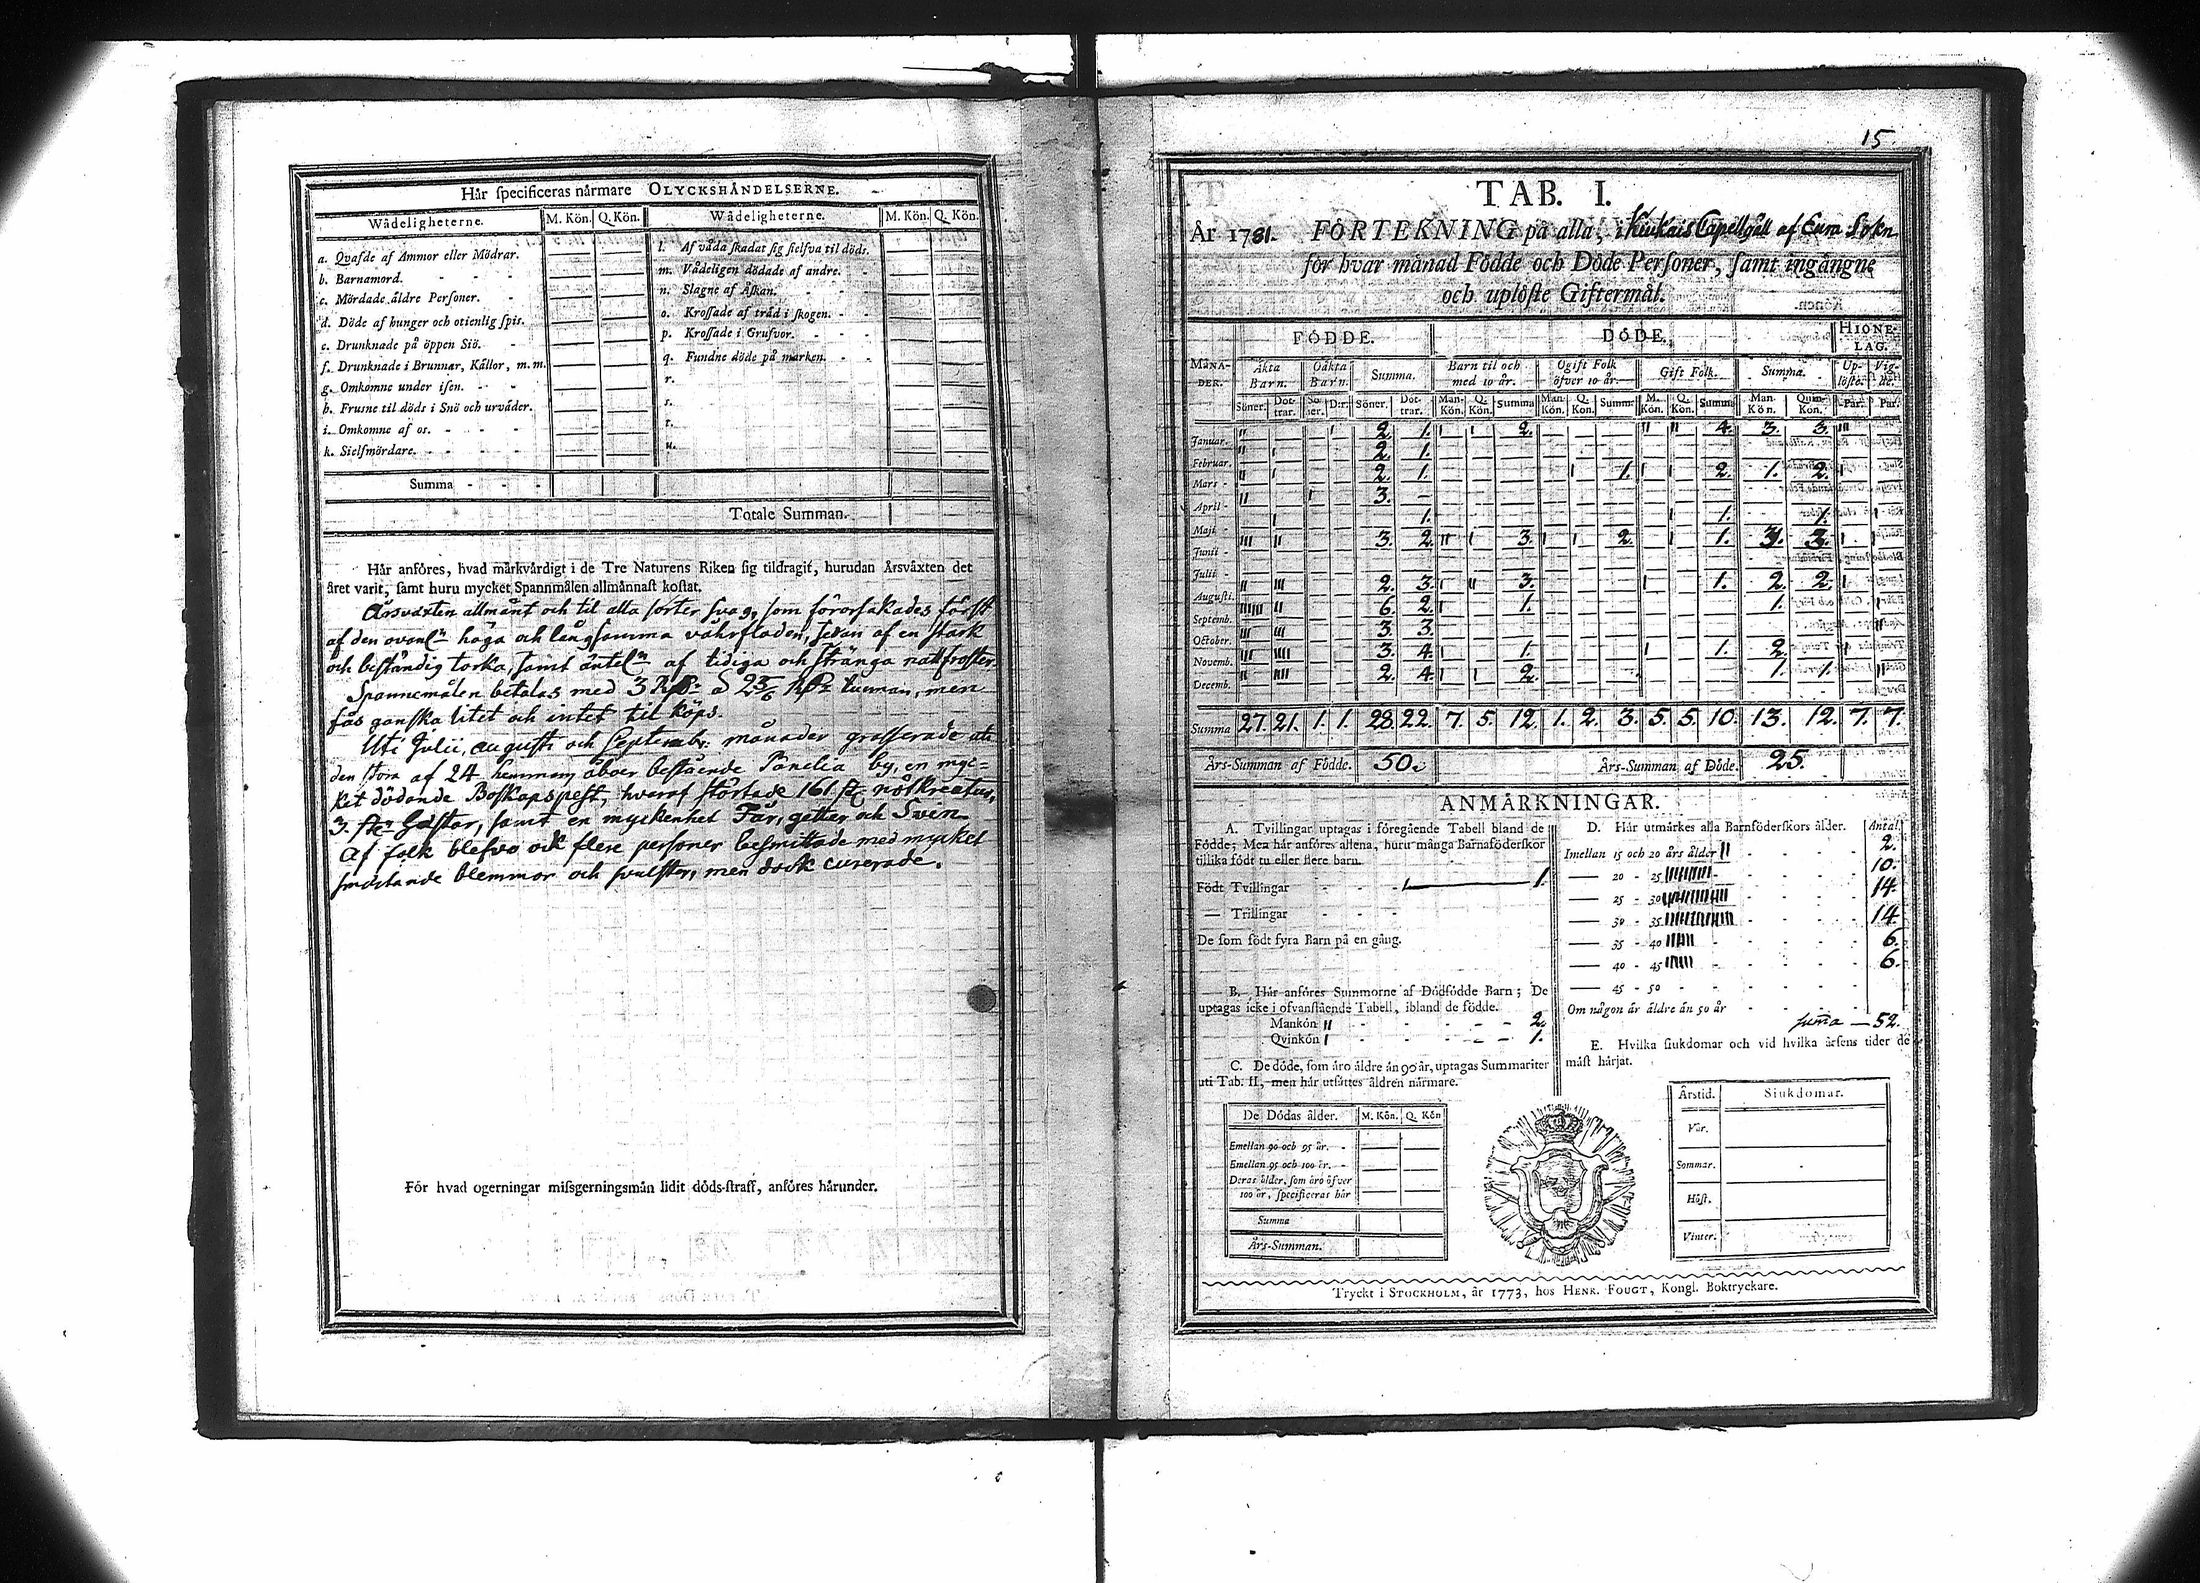 Här specificeras närmare OLYCKSHÄNDELSERNE.
Wådeligheterne. M. Kön. Q. Kön. Wådeligheterne. M. Kön. Q. Kön.
a. Qvafde af Ammor eller Mödrar.
b. Barnamord.
c. Mördade äldre Personer.
d. Döde af hunger och otienlig spis.
e. Drunknade på öppen Siö.
f. Drunknade i Brunnar, Källor, m.m.
g. Omkomne under isen.
h. Frusne til döds i Snö och urväder.
i. Omkomne af os.
k. Sielfmördare.
l. Af våda skadat sig sielfva til döds.
m. Vådeligen dödade af andre.
n. Slagne af Åskan.
o. Krossade af träd i skogen.
p. Krossade i Grufvor.
q. Fundne döde på marken.
r.
s.
t.
u.
Summa
Totale Summan.
Här anföres, hvad märkvärdigt i de Tre Naturens Riken sig tildragit, hurudan Årsväxten det
året varit, samt huru mycket Spannmålen allmännast kostat.
Årsväxten allmänt och til alla sorter svag, som förorsakades först
af den ovanl:n höga och långsamma vährfloden, sedan af en stark
och beständig torka, samt äntel:n af tidiga och stränga nattfroster.
Spannemålen betalas med 3 R a 2 5/6 R tunnan, men
fås ganska litet och intet til köps.
Uti Julii, augusti och Septembr: månader grasserade uti
den stora af 24 hemman åboer bestående Panelia by, en myc=
ket dödande Boskapspest, hvaraf störtade 161 st nötkreatur,
3. st:n hästar, samt en myckenhet Får, getter och Svin.
Af folk blefvo ock flere personer besmittade med mycket
smärtande blemmor och svulster, men dock curerade.
För hvad ogerningar missgerningsmän lidit döds-straff, anföres härunder.
15.
TAB. I.
År 1781. FÖRTEKNING på alla, i Kiukais Capellgäll af Eura Sokn
för hvar månad Födde och Döde Personer, samt ingångne
och uplöste Giftermål.
MÅNADER. FÖDDE. DÖDE. HIONELAG.
Äkta Barn. Oäkta Barn. Summa. Barn til och med 10 år. Ogift Folk öfver 10 år. Gift Folk. Summa. Uplöste. Vigde.
Söner. Dottrar. Söner. D:r Söner. Dottrar. Man-Kön. Q. Kön. Summa Man-Kön. Q. Kön. Summa M. Kön. Q. Kön. Summa Man-Kön. Quin-Kön. Par. Par.
Januar. 2. 1. 2. 4. 3. 3.
Februar. 2. 1.
Mars 2. 1. 1. 2. 1. 2.
April 3.
Maji 1. 1. 1.
Junii 3. 2. 3. 2. 1. 3. 3.
Julii
Augusti. 2. 3. 3. 1. 2. 2.
Septemb. 6. 2. 1. 1.
October. 3. 3.
Novemb. 3. 4. 1. 1. 2.
Decemb. 2. 4. 2. 1. 1.
Summa 27. 21. 1. 1. 28. 22. 7. 5. 12. 1. 2. 3. 5. 5. 10. 13. 12. 7. 7.
Års-Summan af Födde. 50. Års-Summan af Döde. 25.
ANMÄRKNINGAR.
A. Tvillingar uptagas i föregående Tabell bland de
Födde; Men här anföres allena, huru många Barnaföderskor
tillika födt tu eller flere barn.
Födt Tvillingar 1.
— Trillingar
De som födt fyra Barn på en gång.
B. Här anföres Summorne af Dödfödde Barn; De
uptagas icke i ofvanstående Tabell, ibland de födde.
Mankön 2.
Qvinkön 1.
C. De döde, som äro äldre än 90 år, uptagas Summariter
uti Tab. II, men här utsättes åldren närmare.
De Dödas ålder. M. Kön. Q. Kön
Emellan 90 och 95 år.
Emellan 95 och 100 år.
Deras ålder, som äro öfver
100 år, specificeras här
Summa
Års-Summan.
D. Här utmärkes alla Barnföderskors ålder. Antal.
Imellan 15 och 20 års ålder 2.
— 20 - 25 10.
— 25 - 30 14.
— 30 - 35 14.
— 35 - 40 6.
— 40 - 45 6.
— 45 - 50
Om någon är äldre än 50 år
summa — 52.
E. Hvilka siukdomar och vid hvilka årsens tider de
mäst härjat.
Årstid. Siukdomar.
Vår.
Sommar.
Höst.
Vinter.
Tryckt i STOCKHOLM, år 1773, hos HENR. FOUGT, Kongl. Boktryckare.